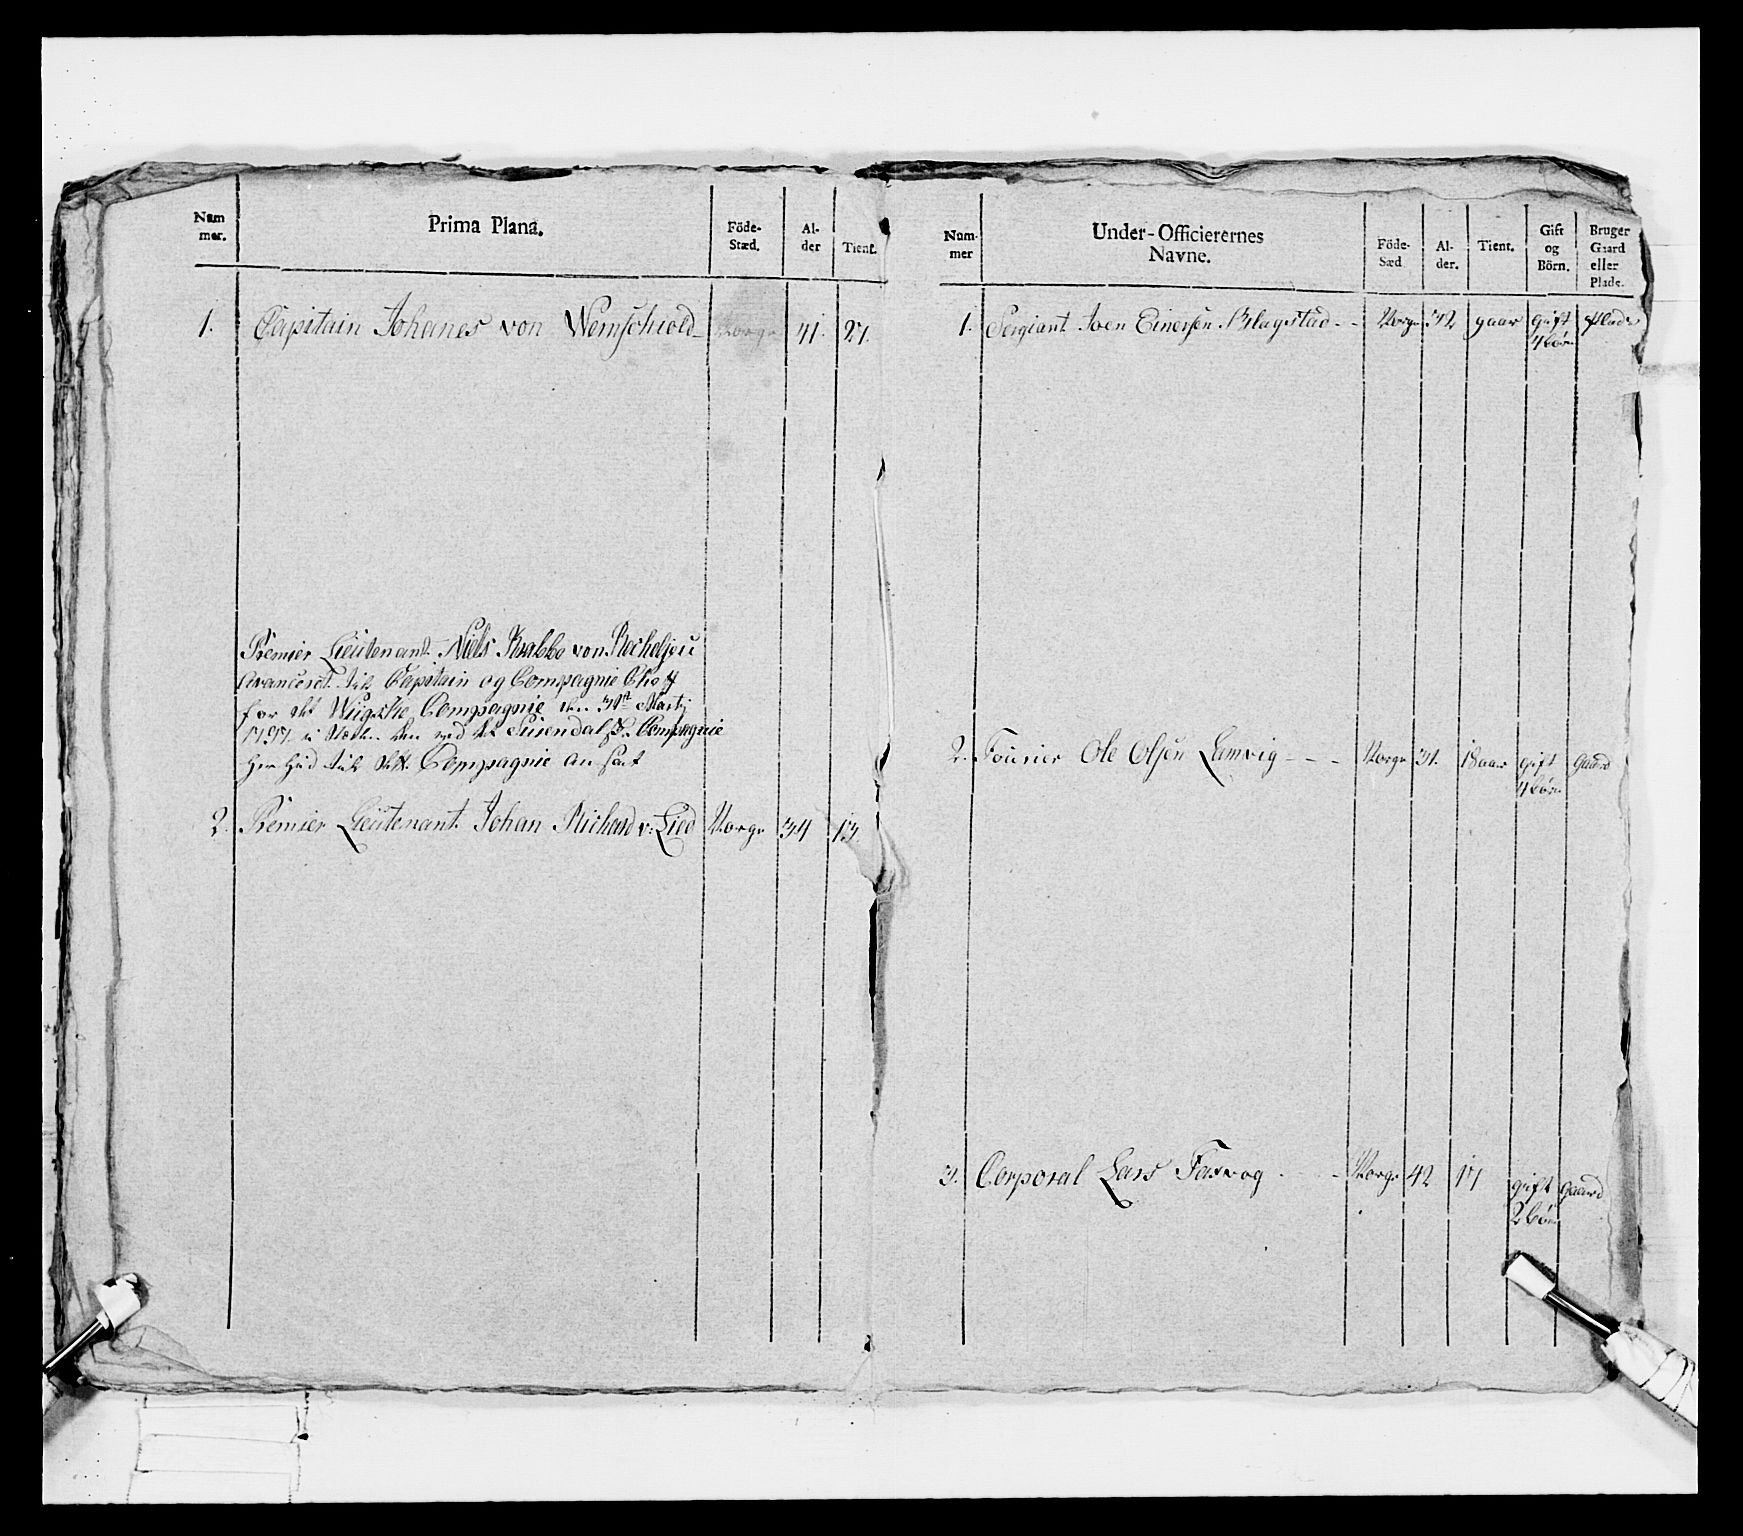 Num
mer.
Prima Plana.
Föde-
Stæd.
Al-
der
Tient.
1. Capitain Johanes von Wernschiold Norge 41. 27.
Premier Lieutenant Niels Krabbe von Recheljeu
Avanceret til Capitain og Compagnie Cheff
for det Wiigske Compagnie den 31te Martj
1797. i Stæden den ved det Surendalske Compagnie
her hid til dett Compagnie an sat
2. Premier Lieutenant Johan Richard v: Lied Norge 34 13.
Num-
mer
Under-Officierernes
Navne.
Föde-
Sæd
Al-
der.
Tient.
Gift
og
Börn.
Bruger
Gaard
eller
Plads.
1. Sergiant Iven Einersen Blagstad - - Norge 32 9 aar Gift Plads
4 bör
2. Fourier Ole Olsen Lamvig - - - Norge 31. 18 aar gift Gaard
4 bör
3. Corporal Lars Farvog - - Norge 42 17 gift Gaard
2 bör